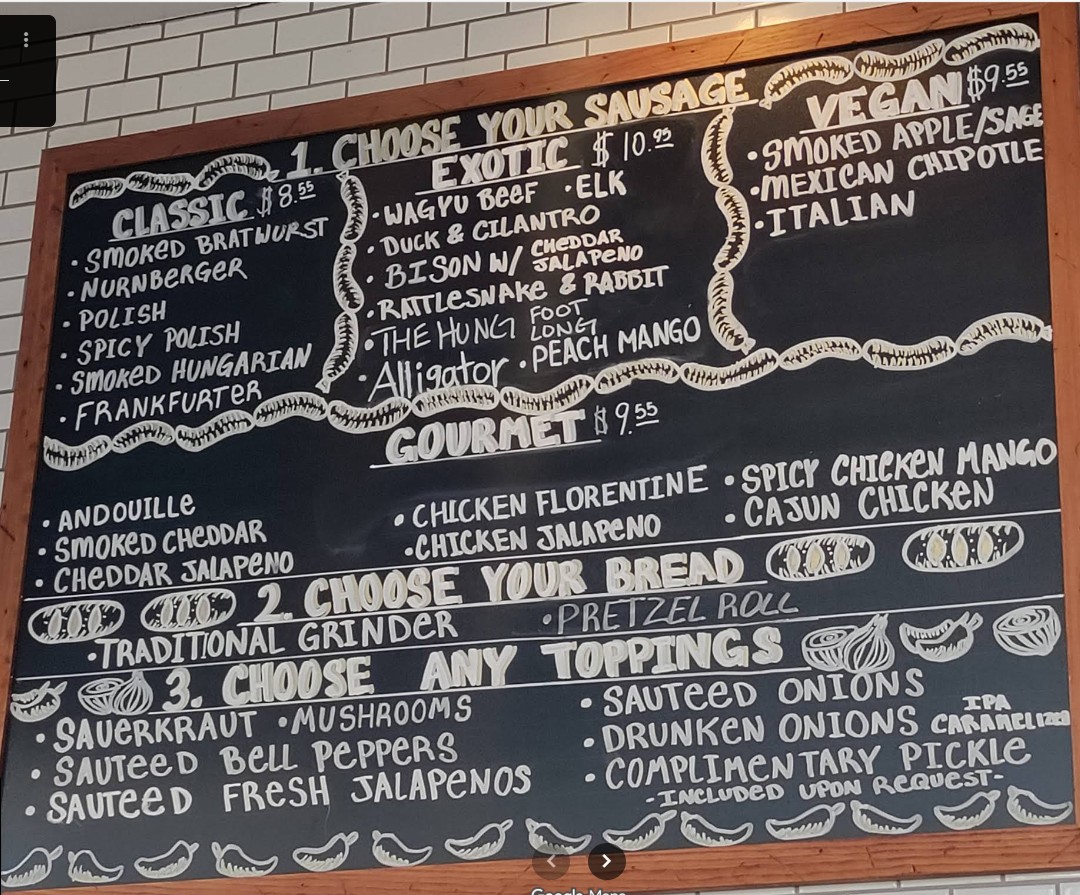 1. CHOOSE YOUR SAUSAGE
CLASSIC $8.55
• SMOKED BRATWURST
• NURNBERGER
• POLISH
• SPICY POLISH
• SMOKED HUNGARIAN
• FRANKFURTER
EXOTIC $10.95
• WAGYU BEEF • ELK
• DUCK & CILANTRO
• BISON W/ CHEDDAR JALAPENO
• RATTLESNAKE & RABBIT
• THE HUNG FOOT LONG
• Alligator • PEACH MANGO
VEGAN $9.55
• SMOKED APPLE/SAGE
• MEXICAN CHIPOTLE
• ITALIAN
GOURMET $9.55
• ANDOUILLE
• SMOKED CHEDDAR
• CHEDDAR JALAPENO
• CHICKEN FLORENTINE
• CHICKEN JALAPENO
• SPICY CHICKEN MANGO
• CAJUN CHICKEN
2. CHOOSE YOUR BREAD
• TRADITIONAL GRINDER • PRETZEL ROLL
3. CHOOSE ANY TOPPINGS
• SAUERKRAUT • MUSHROOMS
• SAUTEED BELL PEPPERS
• SAUTEED FRESH JALAPENOS
• SAUTEED ONIONS
• DRUNKEN ONIONS IPA CARAMELIZED
• COMPLIMENTARY PICKLE
-INCLUDED UPON REQUEST-
Google Maps